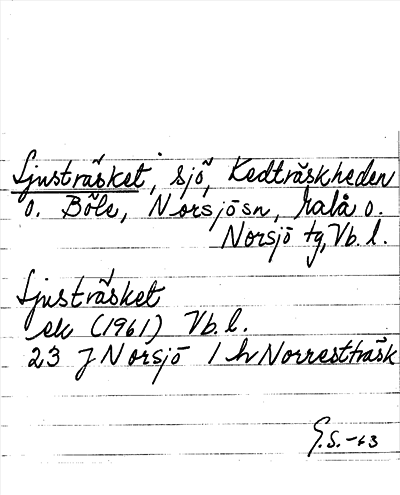 Ljusträsket, sjö, Kedträskheden
o. Böle, Norsjö sn, Malå o.
Norsjö tg, Vb. l.
Ljusträsket
ek (1961) Vb. l.
23 J Norsjö 1 h Norrestträsk
G.S. -63